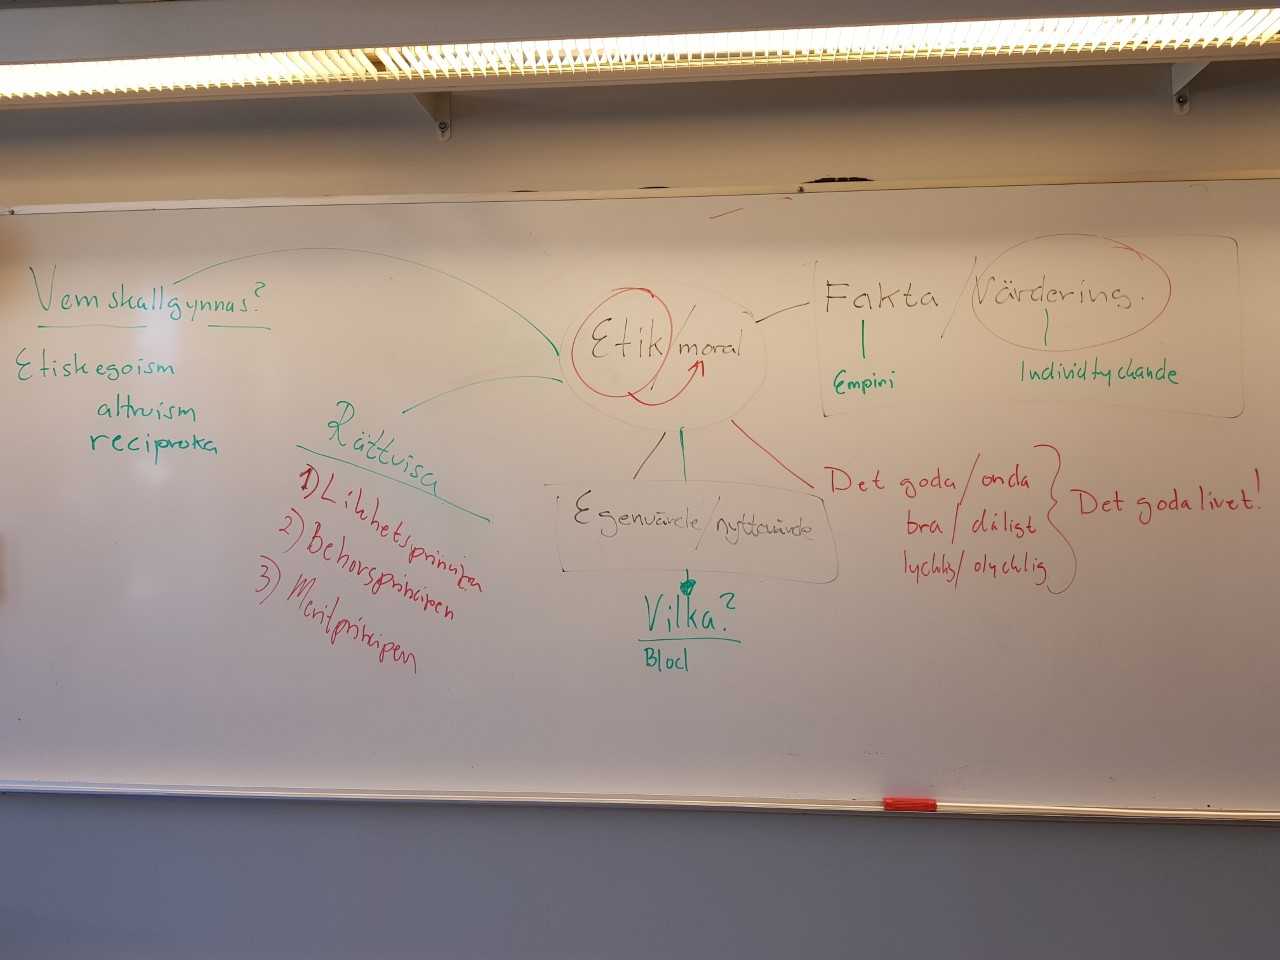 Vem skall gynnas?
Etisk egoism
altruism
reciproka
Rättvisa
1) Likhetsprincipen
2) Behovsprincipen
3) Meritprincipen
Etik/moral
Egenvärde/nyttovärde
Vilka?
Fakta / Värdering.
Empiri
Individ tyckande
Det goda/onda
bra/dåligt
lycklig/olycklig
Det goda livet!